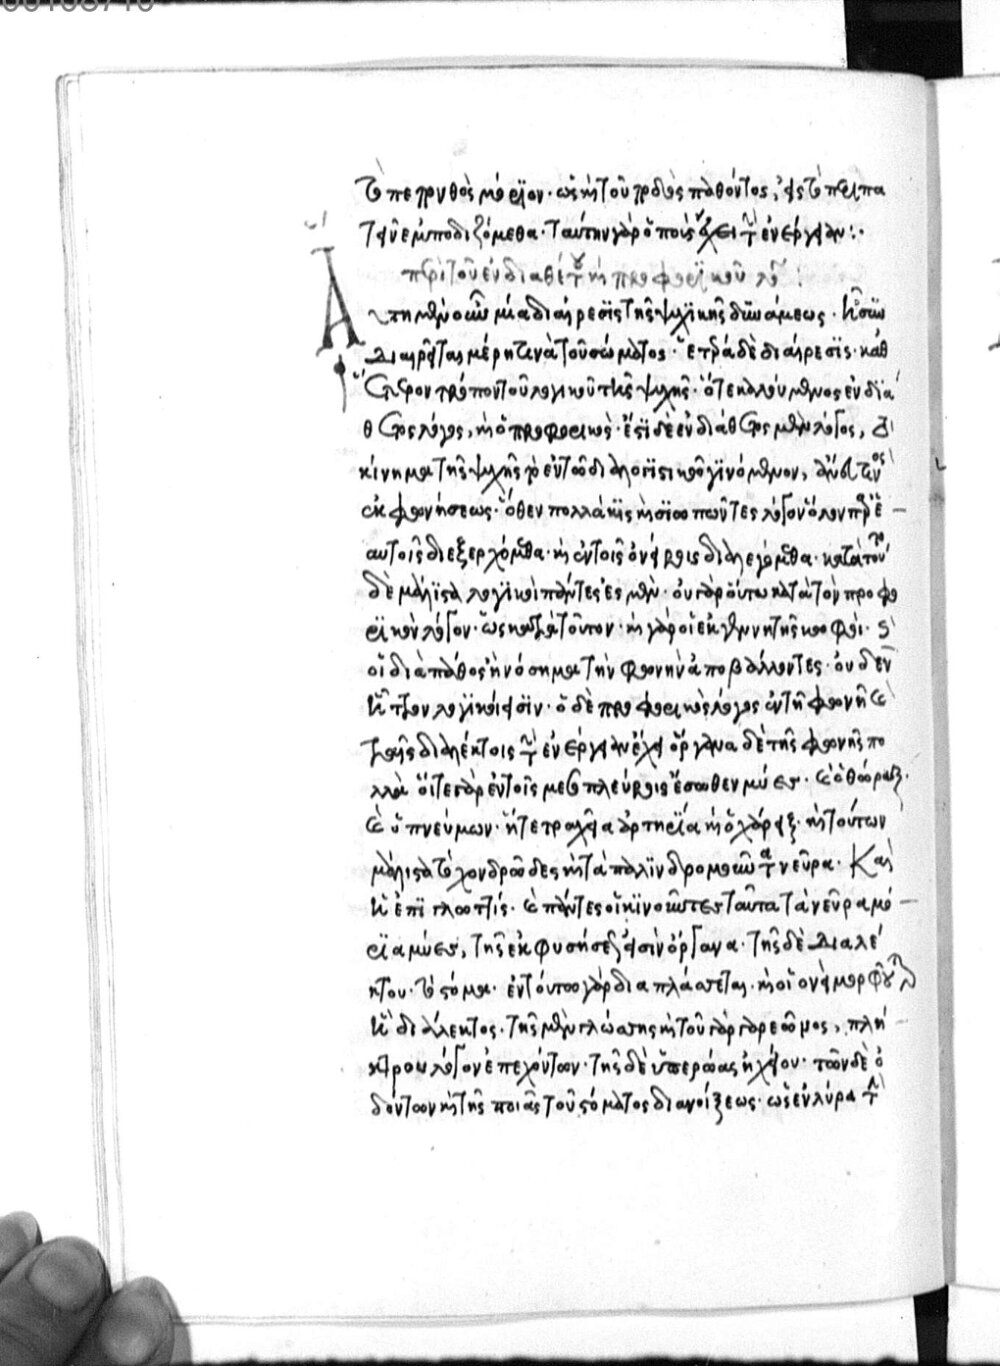 τὸ πεπονθὸς μόριον· ὡς καὶ τοῦ ποδὸς παθόντος, εἰς τὸ περιπα
τεῖν ἐμποδιζόμεθα· ταύτην γὰρ ὁ ποὺς ἔχει τὴν ἐνέργειαν:·
περὶ τοῦ ἐνδιαθέτου καὶ προφορικοῦ λόγου:
Αὕτη μὲν οὖν μία διαίρεσις τῆς ψυχικῆς δυνάμεως· ἢ σὺν
διαιρεῖται μέρη τινὰ τοῦ σώματος· ἑτέρα δὲ διαίρεσις· καθ
ἕτερον τρόπον τοῦ λογικοῦ τῆς ψυχῆς· ὅ τε καλούμενος ἐνδιά
θετος λόγος, καὶ ὁ προφορικός· ἔστι δὲ ἐνδιάθετος μὲν λόγος, τὸ
κίνημα τῆς ψυχῆς τὸ ἐν τῷ διαλογιστικῷ γινόμενον, ἄνευ τινὸς
ἐκφωνήσεως· ὅθεν πολλάκις καὶ σιωπῶντες λόγον ὅλον παρ' ἑ
αυτοῖς διεξερχόμεθα· καὶ ἐν τοῖς ὀνείροις διαλεγόμεθα· κατὰ τοῦτο
δὲ μάλιστα λογικοὶ πάντες ἐσμὲν· οὐ γὰρ οὕτω κατὰ τὸν προφο
ρικὸν λόγον· ὡς κατὰ τοῦτον· καὶ γὰρ οἱ ἐκ γεννητῆς κωφοὶ· καὶ
οἱ διὰ πάθος ἢ νόσημα τὴν φωνὴν ἀποβάλλοντες· οὐδὲν
ἧττον λογικοί εἰσιν· ὁ δὲ προφορικὸς λόγος ἐν τῇ φωνῇ καὶ
ταῖς διαλέκτοις τὴν ἐνέργειαν ἔχει ὄργανα δὲ τῆς φωνῆς πο
λλὰ οἵ τε γὰρ ἐν τοῖς μεσοπλεύροις ἔσωθεν μύες· καὶ ὁ θώραξ·
καὶ ὁ πνεύμων· ἥ τε τραχεῖα ἀρτηρία καὶ ὁ λάρυγξ· καὶ τούτων
μάλιστα τὰ χονδρώδες καὶ τὰ παλινδρομοῦντα νεῦρα· καὶ
ἡ ἐπιγλωττίς· καὶ πάντες οἱ κινοῦντες ταῦτα τὰ νεῦρα μό
ρια μύες, τῆς ἐκφυσήσεώς εἰσιν ὄργανα· τῆς δὲ διαλέ
κτου· τὸ στόμα· ἐν τούτῳ γὰρ διαπλάσσεται· καὶ οἷον εἰ μορφοῦται
ἡ διάλεκτος· τῆς μὲν γλώσσης καὶ τοῦ γαργαρεῶμος, πλή
κτρου λόγον ἐπεχόντων· τῆς δὲ ὑπερώας ἠχείου· τῶν δὲ ὀ
δόντων καὶ τῆς ποιᾶς τοῦ στόματος διανοίξεως· ὡς ἐν λύρᾳ τῶν